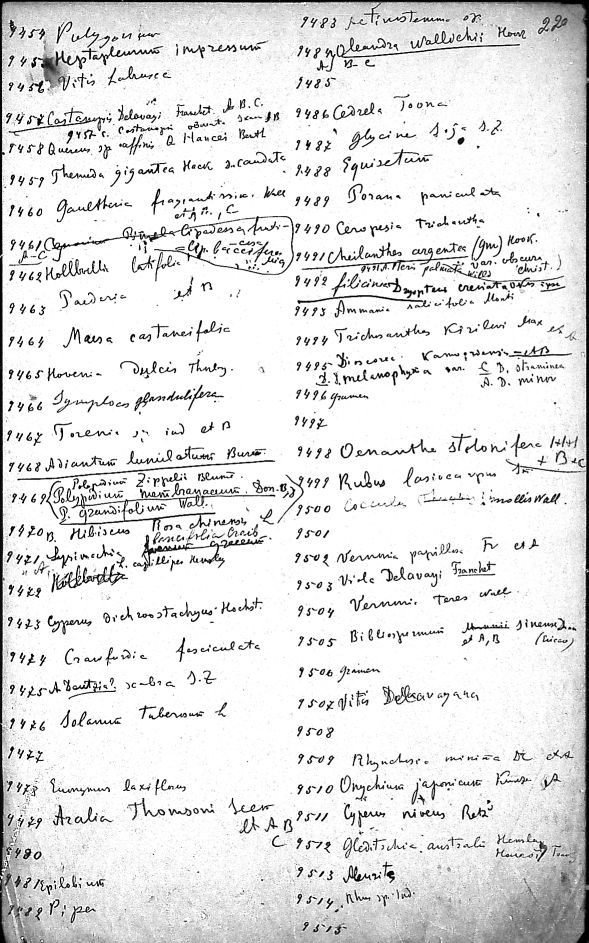 220
9454 Polygonum
9455 Heptapleurum impressum
9456 Vitis Labrusca
9457 Castanopsis Delavayi Franchet A. B. C.
9457 c. Castanopsis
9458 Quercus sp affinis Q Hancei Benth
9459 Themeda gigantea Hack v. caudata
9460 Gaultheria fragrantissima Wall
9461
A-C
9462 Hollbollia latifolia
9463 Paederia et B
9464 Maesa castaneifolia
9465 Hovenia Dulcis Thunbg.
9466 Symplocos glandulifera
9467 Torenia sp ind et B
9468 Adiantum lunulatum Burm.
Polypodium Zippelii Blume.
9469 Polypodium membranaceum Don. B
P. grandifolium Wall.
9470 B. Hibiscus Rosa chinensis L
9471 Lysimachia
A L. capillipes Hemsley
9472
9473 Cyperus dichroostachyus Hochst.
9474 Crawfurdia fasciculata
9475 A Deutzia? scabra S. Z
9476 Solanum tuberosum L
9477
9478 Euonymus laxiflorus
9479 Aralia Thomsoni Seem
et A B
C
9480
9481 Epilobium
9482 Piper
9483 Actinostemma
9484 Oleandra Wallichii Hook
A B C
9485
9486 Cedrela Toona
9487 glycine soja S. Z.
9488 Equisetum
9489 Porana paniculata
9490 Ceropegia trichantha
9491 Cheilanthes argentea (gm) Hook.
9491 A. Pteris var. obscura Christ.)
9492 filicinea Dryopteris
9493 Ammania salicifolia Monti
9494 Trichosanthes Kirilowi Max et b
9495 Dioscorea Kamoonensis = AB
D. melanophyma var. C D. straminea
A. D. minor
9496 gramen
9497
9498 Oenanthe stolonifera
+ B + C
9499 Rubus lasiocarpus Sm
9500 Cocculus mollis Wall.
9501
9502 Vernonia papillosa Fr et A
9503 Viola Delavayi Franchet
9504 Vernonia teres Wall
9505 Biblospermum sinense
et A, B
9506 gramen
9507 Vitis Delavayana
9508
9509 Rhynchosia minima DC et A
9510 Onychium japonicum Kunze A
9511 Cyperus niveus Retz
9512 Gleditschia australis Hemsley
9513 Aleurites
9514 Rhus sp. ind.
9515